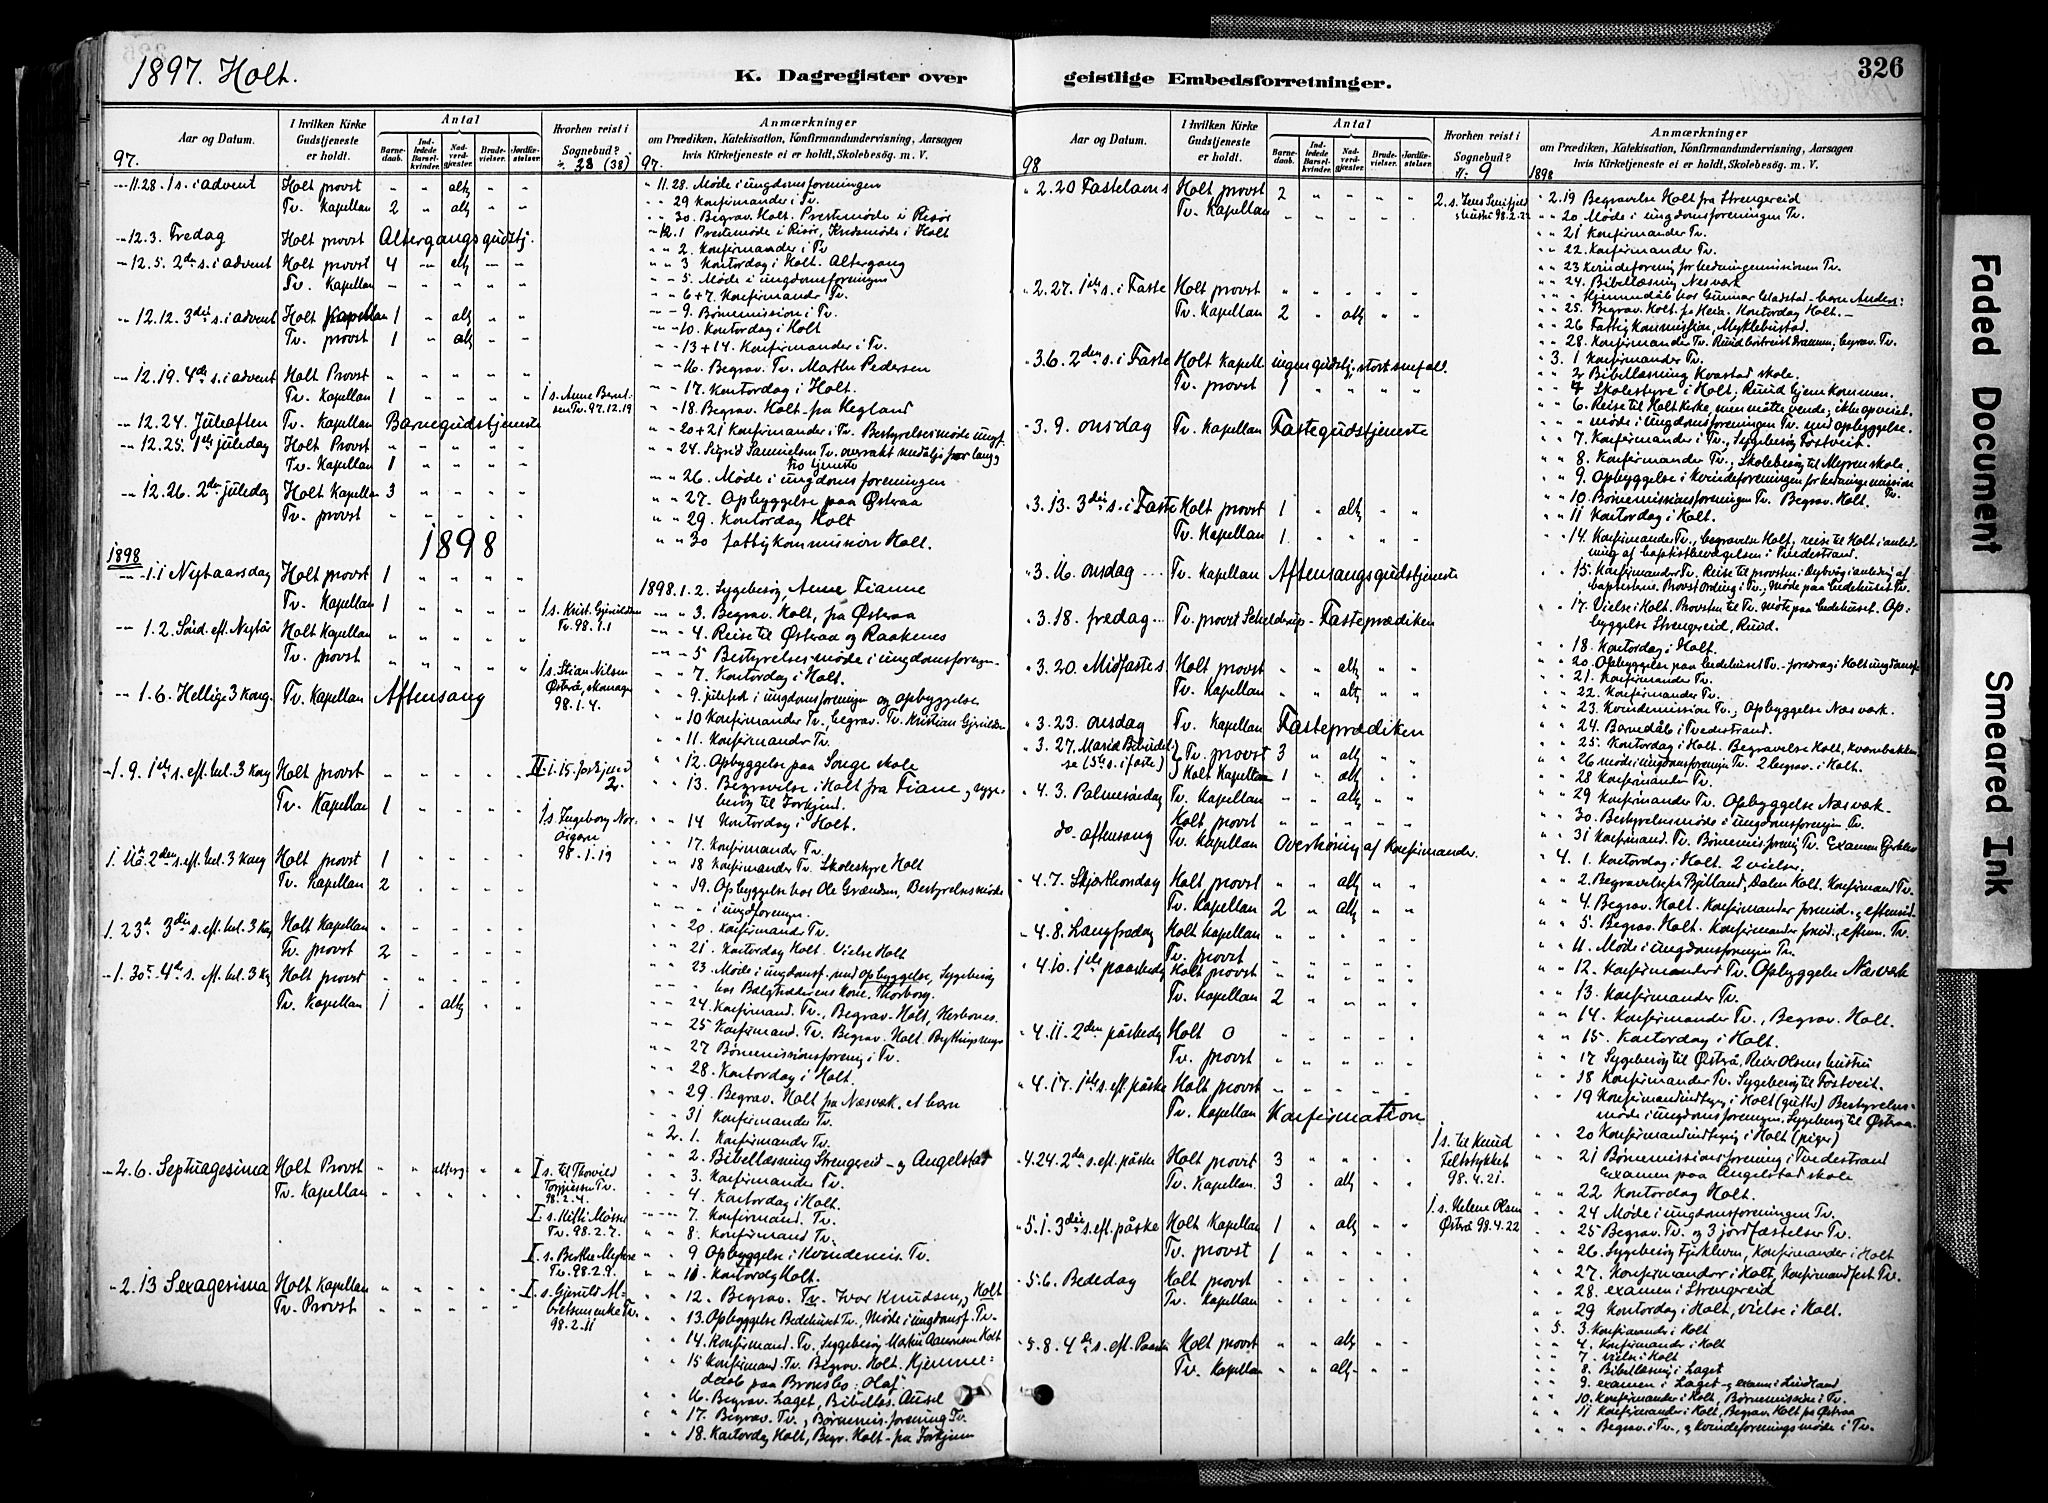 1897. Holt.
K. Dagregister over
Aar og Datum.
I hvilken Kirke Gudstjeneste er holdt.
Antal
Barnedaab.
Indledede Barselkvinder.
Nadverdgjæster.
Brudevielser.
Jordfæstelser.
Hvorhen reist i Sognebud?
Anmærkninger
om Prædiken, Katekisation, Konfirmandundervisning, Aarsagen
hvis Kirketjeneste ei er holdt, Skolebesög. m. V.
97. (38) 97.
11.28. 1 s. i advent Holt provst " " altg " "
Tv. Kapellan 2 " altg " "
12.3. Fredag Holt provst Altergangsgudstj.
12.5. 2den s. i advent Holt provst 4 - altg - -
Tv. Kapellan - - - - -
12.12. 3die s. i advent Holt 1 " altg " "
Tv. provst 1 " altg " "
12.19. 4de s. i advent Holt Provst " " " " "
Tv. Kapellan 1 " " " "
12.24. Juleaften Tv. Kapellan Barnegudstjeneste
12.25. 1ste juledag Holt Provst
Tv. Kapellan 1
12.26. 2den juledag Holt Kapellan 3
Tv. provst
1898
1898
1.1 Nytaarsdag Holt provst 1
Tv. Kapellan 1
1.2. Sönd. eft. Nytår Holt Kapellan
Tv. provst
1.6. Hellige 3 Kong. Tv. Kapellan Aftensang
1.9. 1ste s. eft. hel. 3 Kong Holt provst
Tv. Kapellan 1
1.16. 2den s. eft. hel. 3 Kong Holt provst 1
Tv. Kapellan 2
1.23. 3die s. eft. hel. 3 Kong Holt Kapellan
Tv. provst 2
1.30. 4de s. eft. hel. 3 Kg Holt provst
Tv. Kapellan 1 " altg
2.6. Septuagesima Holt Provst " " alterg " "
Tv. Kapellan
2.13 Sexagesima Holt Kapellan
Tv. Provst
Tv. 97.12.19
Tv. 98.1.1
1 s. Stian Nilsen
98.1.4.
98.1.19
98.2.4.
Tv. 98.2.7.
Tv. 98.2.9.
98.2.11
11.28. Møde i ungdomsforeningen
29 Konfirmander i Tv.
30. Begrav. Holt. Prestemøde i Risör
12.1 Prestemøde i Risör, Kredsmøde i Holt
2. Konfirmander i Tv
3 Kontordag i Holt. Altergang
5. Møde i ungdomsforeningen
6+7. Konfirmander Tv.
9. Børnemission i Tv.
10. Kontordag i Holt
13+14. Konfirmander i Tv.
16. Begrav. Tv. Marthe Pedersen
17. Kontordag i Holt.
18. Begrav. Holt - fra Hegland
20+21 Konfirmander i Tv. Bestyrelsesmøde ungf.
24. Sigrid Samuelsen Tv. overrakt medalje for lang
tro tjeneste
26. Møde i ungdomsforeningen
27. Opbyggelse paa Østraa
29. Kontordag Holt
30 fattigkommission Holt.
1898.1.2. Sygebesøg, Anne Fianne
3. Begrav. Holt, fra Østraa
4. Reise til Østraa og Raakenes
5 Bestyrelsesmøde i ungdomsforegn.
7. Kontordag i Holt.
9. julefest i ungdomsforeningen og opbyggelse
10 Konfirmander Tv., begrav. Tv. Kristian
11. Konfirmander Tv.
12. Opbyggelse paa Songe skole
13. Begravelse i Holt fra Fiane, syge-
besög til
14 Kontordag i Holt.
17. Konfirmander Tv.
18 Konfirmander Tv. Skolestyre Holt
19. Opbyggelse hos Ole Bestyrelsesmöde
i ungdforeningen.
20. Konfirmander Tv.
21. Kontordag Holt. Vielse Holt
23. Møde i ungdomsf. med opbyggelse, Sygebesög
hos kone, Thorborg.
24. Konfirmand. Tv., Begrav. Holt,
25 Konfirmand. Tv. Begrav. Holt.
27 Börnemissionsforening i Tv.
28. Kontordag i Holt.
29. Begrav. Holt fra Næsværk, et barn
31 Konfirmander Tv.
2. 1. Konfirmander Tv.
2. Bibellæsning Strengereid - og Angelstad
3. Konfirmander Tv.
4. Kontordag i Holt.
7. Konfirmand. Tv.
8. Konfirmand Tv.
9 Opbyggelse i Kvindemis. Tv.
11. Kontordg Holt.
12. Begrav. Tv. Ivar Knudsen, og Holt
13. Opbyggelse Bedehuset Tv., Møde i ungdomsf. Tv.
14. Konfirmand. Tv., Sygebesög Holt
15 Konfirmand. Tv. Begrav. Holt. Hjemme-
daab paa : Olaf
16. Begrav. Laget, Bibellæs.
17. Begrav. Tv., Børnemis. forening Tv.
18. Kontordag Holt, Begr. Holt - fra
geistlige Embedsforretninger.
326
Aar og Datum.
I hvilken Kirke Gudstjeneste er holdt.
Antal
Barnedaab.
Indledede Barselkvinder.
Nadverdgjæster.
Brudevielser.
Jordfæstelser.
Hvorhen reist i Sognebud?
Anmærkninger
om Prædiken, Katekisation, Konfirmandundervisning, Aarsagen
hvis Kirketjeneste ei er holdt, Skolebesög. m. V.
98 9 1898
2.20 Fastelavns Holt provst 2
Tv. Kapellan
2.27. 1ste s. i Faste Holt provst
Tv. Kapellan 2 " altg " "
3.6. 2den s. i Faste Holt Kapell. ingen gudstj. stort snefall.
Tv. provst 1
3.9. onsdag Tv. Kapellan Fastegudstjeneste
3.13. 3die s. i Faste Holt provst 1 " altg " "
Tv. Kapellan 1
3.16. onsdag Tv. Kapellan Aftensangsgudstjeneste
3.18. fredag Tv. provst Schelderup - Fasteprædiken
3.20. Midfastes Holt provst " " altg " "
Tv. Kapellan " " altg " "
3.23. onsdag Tv. Kapellan Fasteprædiken
3.27. Mariæ Bebudel-
se (5te s. i faste) Tv. provst 3 " altg
Holt Kapellan 1 " altg
4.3. Palmesöndag Tv. Kapellan " " altg
Holt provst
do. aftensang Tv. Kapellan Overhöring af Konfirmander.
4.7. Skjærthorsdag Holt provst " " altg
Tv. Kapellan 2 " altg
4.8. Langfredag Holt Kapellan
Tv. provst
4.10. 1ste paaskedg Holt provst
Tv. Kapellan 2
4.11. 2den påskedg Holt 0
Tv. provst
4.17. 1ste s. eft. påske Holt provst
Tv. Kapellan Konfirmation
4.24. 2den s. eft. påske Holt provst 3
Tv. Kapellan. 3 " altg
5.1. 3die s. eft. påske Holt Kapellan 1 " altg
Tv. provst 1
5.6. Bededag Holt provst
Tv. Kapellan
5.8. 4de s. eft. Paaske Holt provst " " altg
Tv. Kapellan " " altg
1 s. til Knud
98.4.21.
1 s. Helene Olsen
Østrå 98.4.22
2.19 Begravelse Holt fra Strengereid
20 Møde i ungdomsforeningen Tv.
21 Konfirmander Tv.
22. Konfirmander Tv.
23 Kvindeforening for hedningemissionen Tv.
24. Bibellæsning Næsværk
Hjemmedåb hos Gunnar - barn Anders:
25. Begrav. Holt. fra Heia. Kontordag Holt.
26 Fattigkommission, Myklebustad.
28. Konfirmander Tv. begrav. Tv.
3. 1 Konfirmander Tv.
2 Bibellæsning Kvastad skole.
4 Skolestyre i Holt, Ruud hjem kommen.
6. Reise til Holt Kirke, men måtte vende; ikke opveiet.
møde i ungdomsforeningen Tv. med opbyggelse.
7. Konfirmander i Tv., Sygebesög Fostveit.
8. Konfirmander Tv.; Skolebesög til skole.
9. Opbyggelse i Kvindeforeningen for hedningemission
10. Børnemissionsforeningen Tv. Begrav. Holt. Tv.
11 Kontordag i Holt.
14. Konfirmander Tv., begravelse Holt, reise til Holt i anled-
ning af baptistbevægelsen i Tvedestrand.
15. Konfirmander Tv. Reise til provsten i Dybvåg i anledning af
baptisterne. Provst Ording i Tv., Møde paa bedehuset Tv.
17. Vielse i Holt. Provsten til Tv. Møte paa bedehuset. Op-
byggelse Strengereid, Ruud.
18. Kontordag i Holt.
20. Opbyggelse paa bedehuset Tv. - foredrag i Holt ungdomsf.
21. Konfirmander Tv.
22. Konfirmander Tv.
23. Kvindemission Tv., Opbyggelse Næsværk.
24. Barnedåb i Tvedestrand.
25. Kontordag i Holt. Begravelse Holt, Kvernbakken
26 møde i ungdomsforeningen Tv. 2 begrav. i Holt.
28 Konfirmander Tv.
29 Konfirmander Tv. Opbyggelse Næsværk.
30. Bestyrelsesmøde i ungdomsforeningen Tv.
31 Konfirmand. Tv. Børnemis. forening Tv. Examen
4. 1. Kontordag i Holt. 2 vielser.
2. Begravelse fra Dalen Holt. Konfirmand Tv.
4. Begrav. Holt. Konfirmander formid. og eftermid.
5. Begrav. Holt. Konfirmander formid., efterm. Tv.
11. Møde i ungdomsforeningen Tv.
12. Konfirmander Tv. Opbyggelse Næsværk
13. Konfirmander Tv.
14. Konfirmander Tv., Begrav. Holt.
15. Kontordag i Holt.
17 Sygebesög til Østrå, Reier Olsens hustru
18 Konfirmander Tv. Sygebesög til Fostveit.
19 Konfirmandindtegng i Holt (gutter) Bestyrelses-
møde i ungdomsforeningen. Sygebesög til Østraa.
20 Konfirmandindtegng i Holt (piger)
21 Børnemissionsforening i Tvedestrand
Examen paa Angelstad skole
22 Kontordag Holt.
24 Møde i ungdomsforeningen Tv.
25 Begrav. Tv. og 3 jordfæstelser Tv.
26. Sygebesög Konfirmander i Holt
27. Konfirmander i Holt, Konfirmandfest Tv.
28. examen i Strengereid
29 Kontordag i Holt, vielse i Holt.
5. 3. Konfirmander i Holt
4. Konfirmander i Holt
7. vielse i Holt
8. Bibellæsng i Laget
9. examen i Laget - og examen i
10. Konfirmander i Holt, Børnemission i Tv.
11 Konfirmander i Holt, Begrav. Holt fra Østraa
Begrav. i Tv., og Kvindeforeningsmøde i Tv.
Faded Document
Smeared Ink